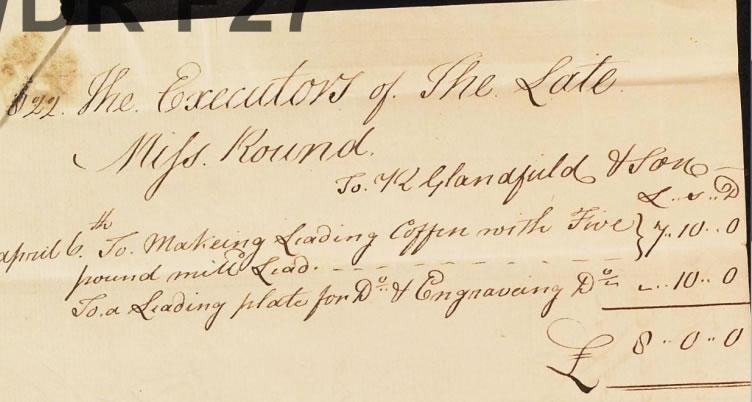 WDR F27
1822. The Executors of The Late
Miss. Round.
To. R Glandfield & Son
L .. s .. D
April 6.th To. Makeing Leading Coffin with Five } 7 .. 10 .. 0
pound mill'd Lead.
To. a Leading plate for Do. & Engraveing Do. ~ .. 10 .. 0
£ 8 .. 0 .. 0